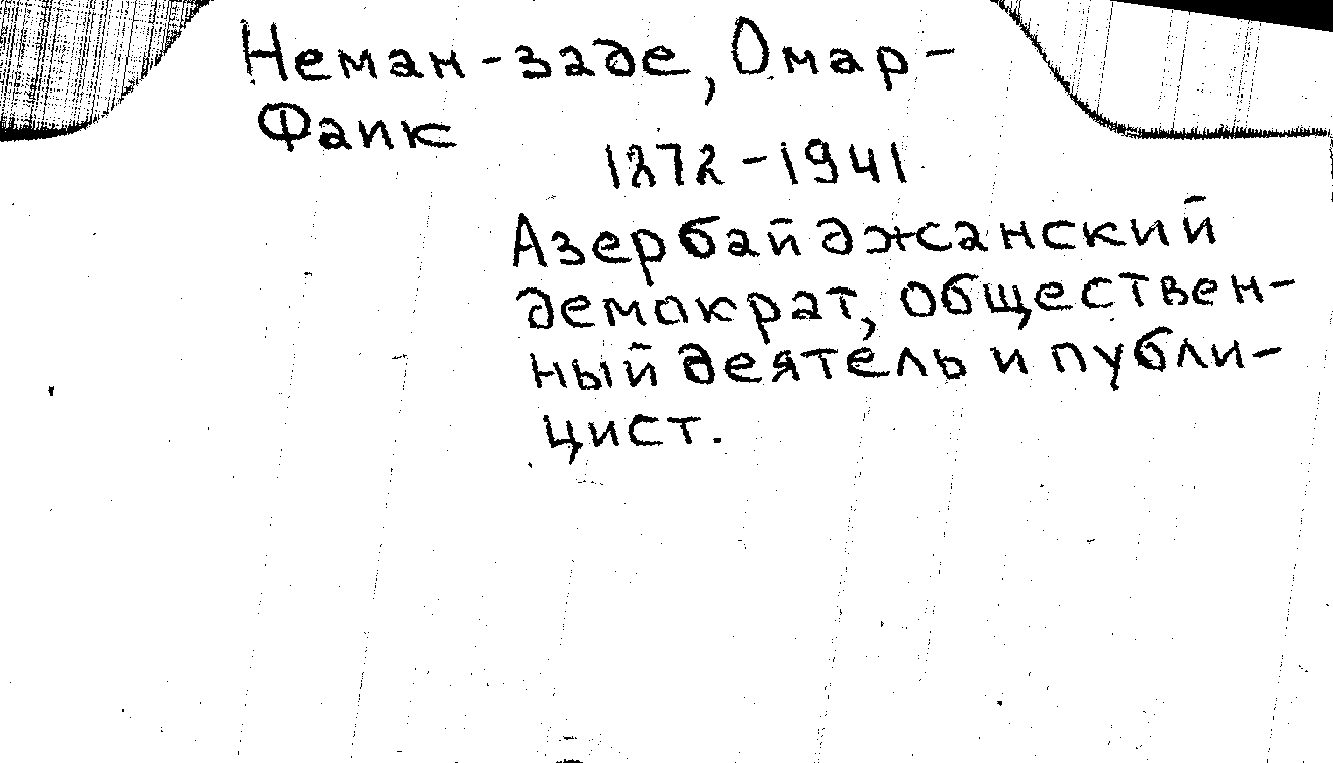 Неман-заде, Омар-
Фаик
1872-1941
Азербайджанский
демократ, обществен-
ный деятель и публи-
цист.